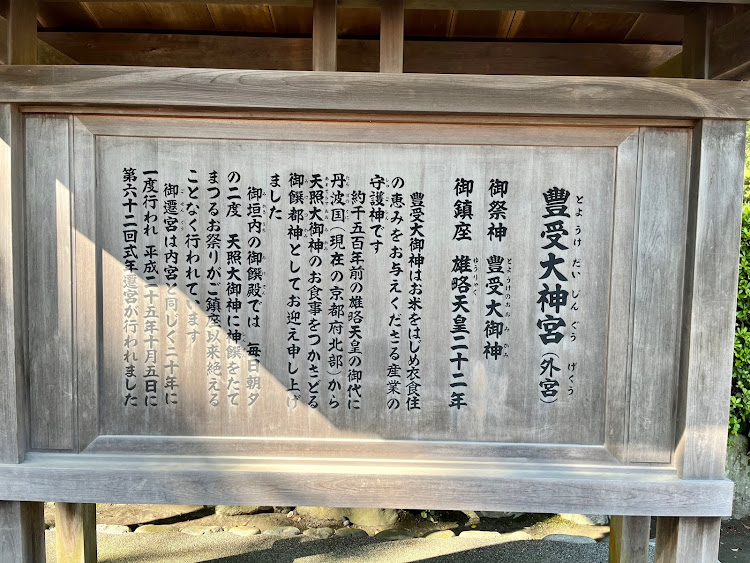 豊受大神宮(外宮)
御祭神 豊受大御神
御鎮座 雄略天皇二十二年
豊受大御神はお米をはじめ衣食住
の恵みをお与えくださる産業の
守護神です
約千五百年前の雄略天皇の御代に
丹波国(現在の京都府北部)から
天照大御神のお食事をつかさどる
御饌都神としてお迎え申し上げ
ました
御垣内の御饌殿では 毎日朝夕
の二度 天照大御神に神饌をたて
まつるお祭りがご鎮座以来絶える
ことなく行われています
御遷宮は内宮と同じく二十年に
一度行われ 平成二十五年十月五日に
第六十二回式年遷宮が行われました